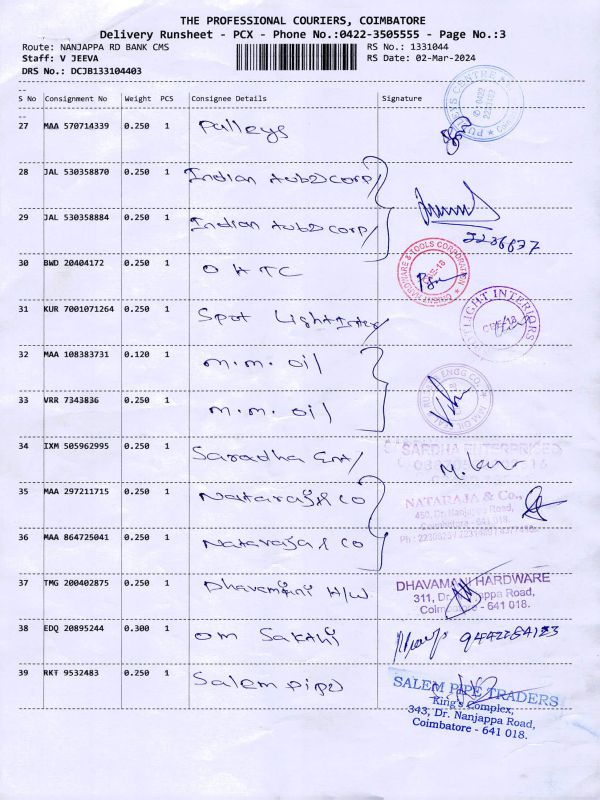 THE PROFESSIONAL COURIERS, COIMBATORE
Delivery Runsheet - PCX - Phone No.:0422-3505555 - Page No.:3
Route: NANJAPPA RD BANK CMS RS No.: 1331044
Staff: V JEEVA RS Date: 02-Mar-2024
DRS No.: DCJB133104403
S No Consignment No Weight PCS Consignee Details Signature
27 MAA 570714339 0.250 1 Pulleys
PULLEYS CENTRE
28 JAL 530358870 0.250 1 Indian tub2 corp/
29 JAL 530358884 0.250 1 Indian tub2 corp/
2236837
30 BWD 20404172 0.250 1 O H T C
HARDWARE & TOOLS CORPORATION
31 KUR 7001071264 0.250 1 Spot Light Inter
LIGHT INTERIORS
32 MAA 108383731 0.120 1 m.m. oil
33 VRR 7343836 0.250 1 m.m. oil
ENGG CO.
34 IXM 505962995 0.250 1 Saradha Ent/
SARDHA ENTERPRISES
35 MAA 297211715 0.250 1 Nataraj & co
NATARAJA & Co.,
450, Dr. Nanjappa Road,
Coimbatore - 641 018.
36 MAA 864725041 0.250 1 Nataraja & co
37 TMG 200402875 0.250 1 Dhavamani H/W
DHAVAMANI HARDWARE
311, Dr. Nanjappa Road,
Coimbatore - 641 018.
38 EDQ 20895244 0.300 1 Om Sakthi
39 RKT 9532483 0.250 1 Salem pipe
SALEM PIPE TRADERS
King's Complex,
343, Dr. Nanjappa Road,
Coimbatore - 641 018.